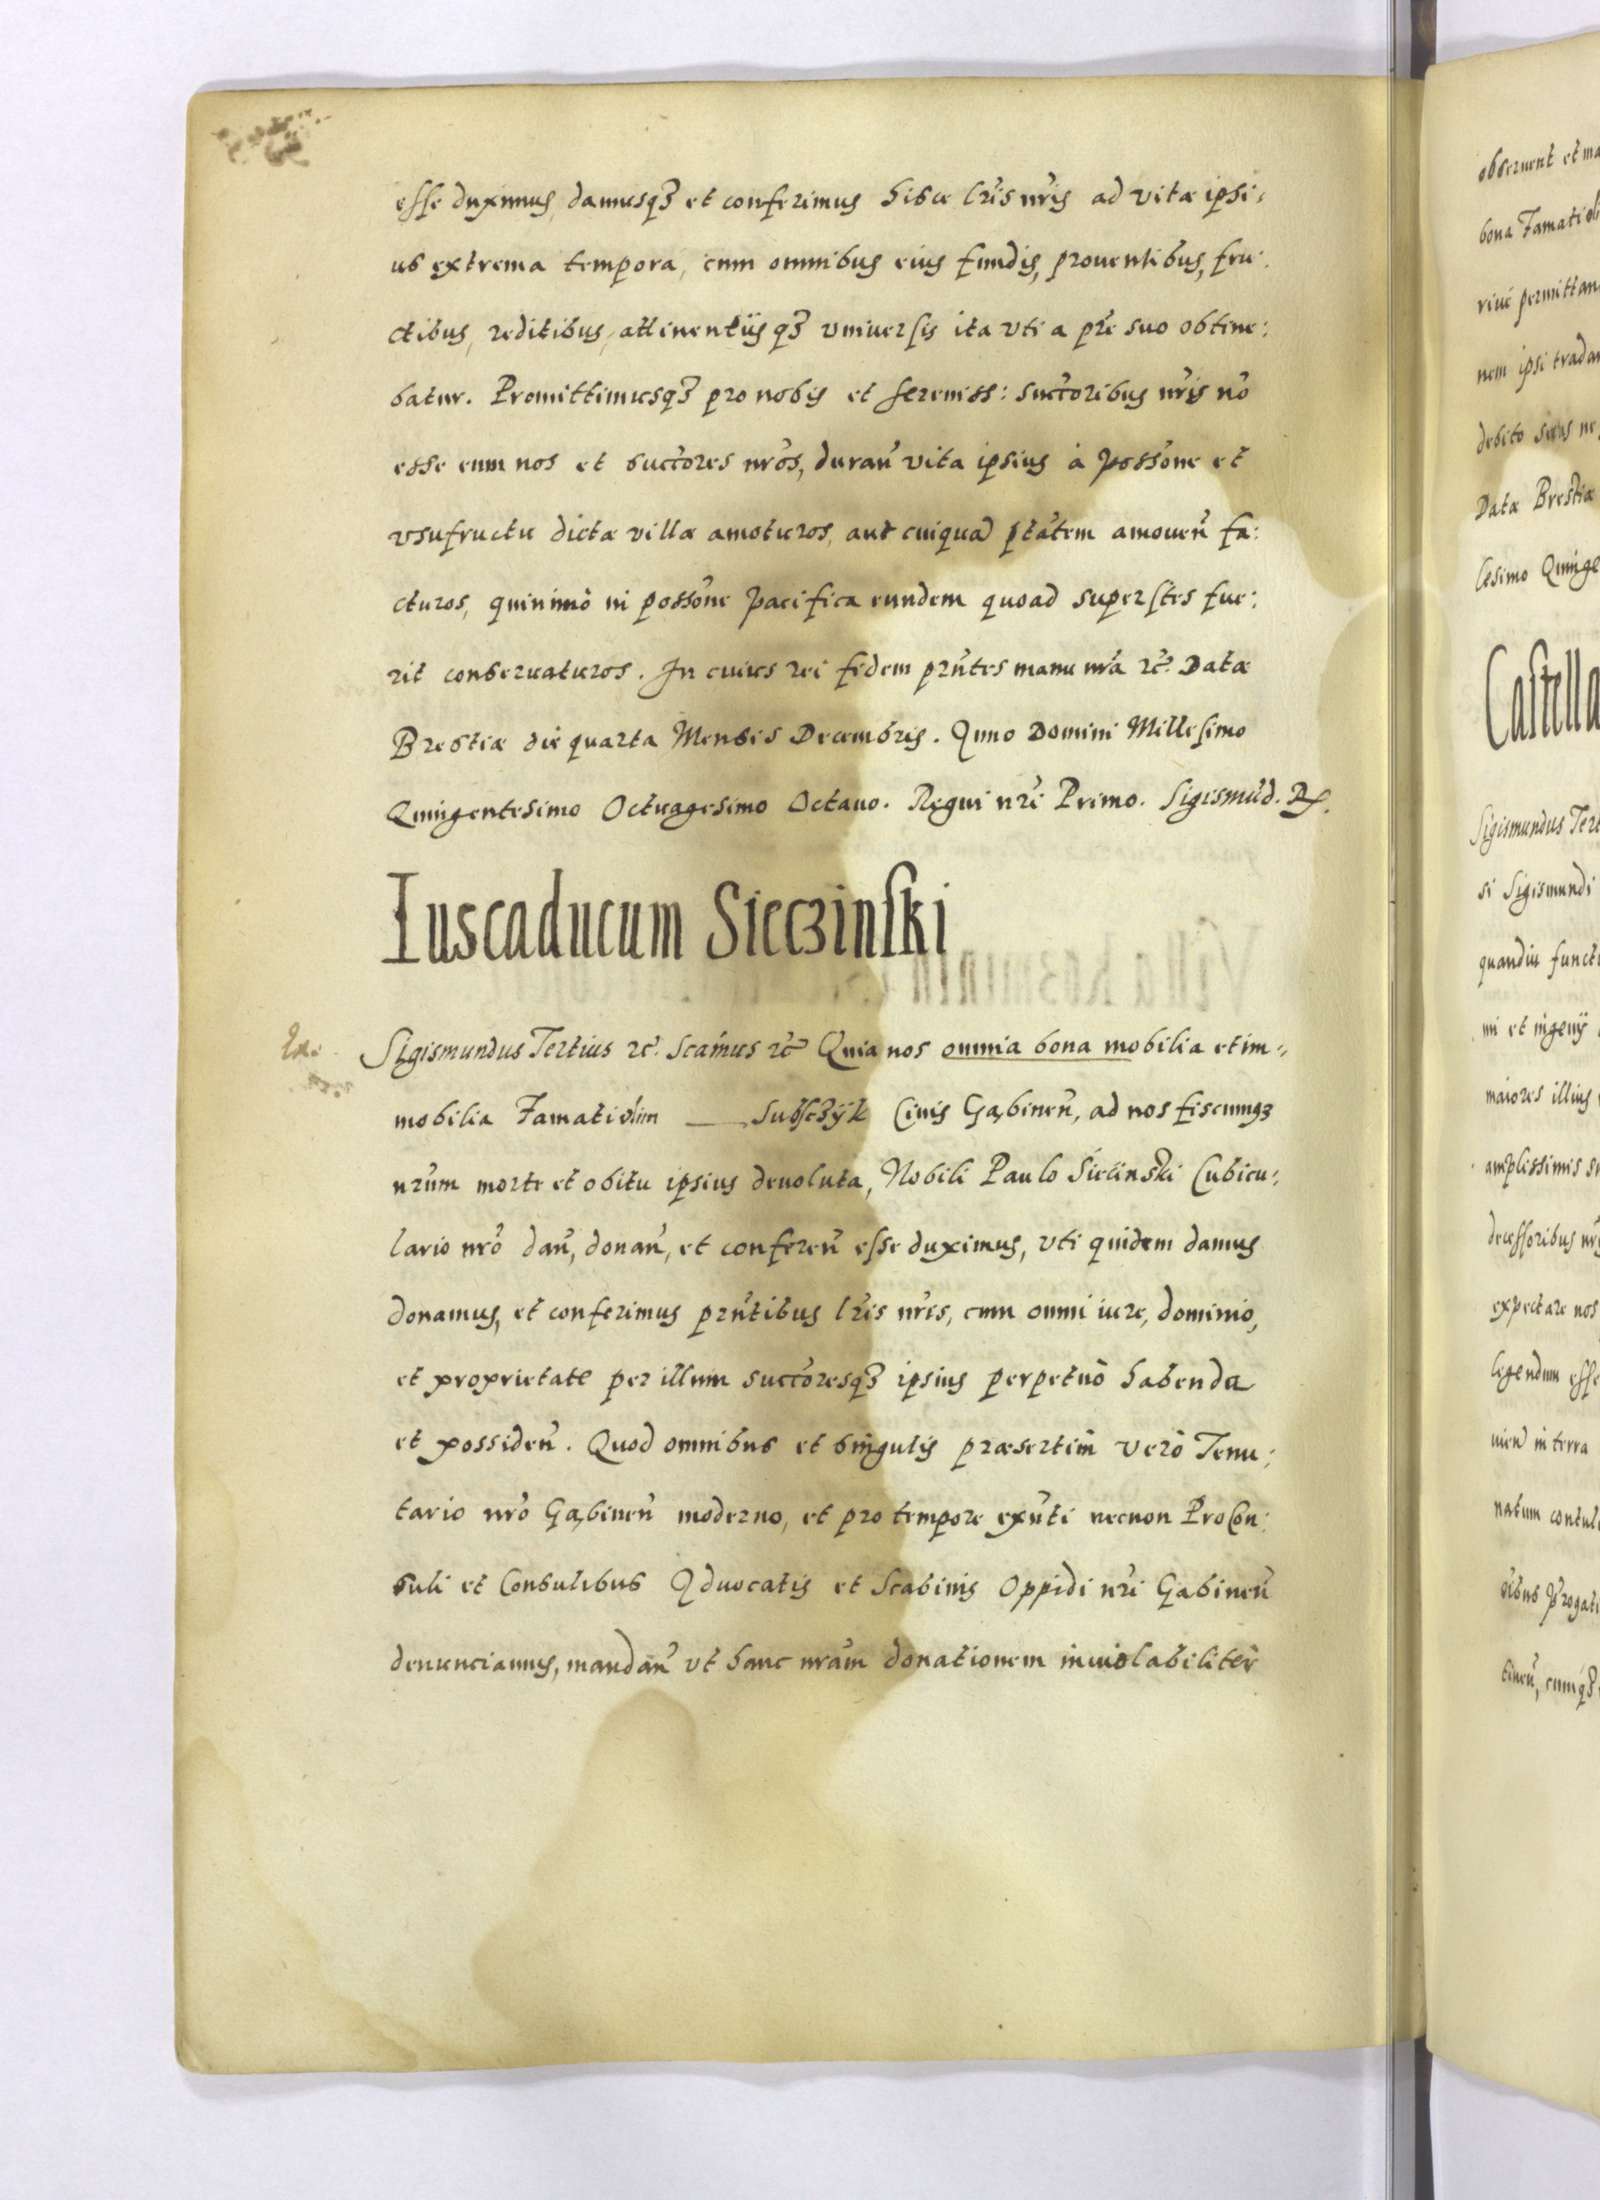 esse duximus, damusq3 et conferimus hisce lr̃is nr̃is ad vitæ ipsi:
us extrema tempora, cum omnibus eius fundis, prouentibus, fru:
ctibus, reditibus, attinentÿsq3 vniuersis ita vti a pr̃e suo obtine:
batur. Promittimusq3 pro nobis et sereniss: succ̃oribus nr̃is nõ
esse eum nos et succ̃ores nr̃os, durañ vita ipsius à possõne et
vsufructu dictæ villæ amoturos, aut cuiquã ptãtem amoueñ fa:
cturos, quinimò in possõne pacifica eundem quoad superstes fue:
rit conseruaturos. In cuius rei fidem prñtes manu nr̃a rc̃. Datæ
Brestiæ die quarta Mensis Decembris. Anno Domini Millesimo
Quingentesimo Octuagesimo Octauo. Regni nr̃i Primo. Sigismũd. Rx.
Ius caducum Sieczinski
Sigismundus Tertius rc̃. Scãmus rc̃ Quia nos omnia bona mobilia et im:
mobilia Famati olim —— Subsczÿk Ciuis Gabineñ, ad nos fiscumq3
nr̃um morte et obitu ipsius deuoluta, Nobili Paulo Siecinski Cubicu:
lario nr̃o dañ, donañ, et confereñ esse duximus, vti quidem damus
donamus, et conferimus prñtibus lr̃is nr̃is, cum omni iure, dominio,
et proprietate per illum succ̃oresq3 ipsius perpetuò habenda
et possideñ. Quod omnibus et singulis præsertim verò Tenu:
tario nr̃o Gabineñ moderno, et pro tempore exñti necnon ProCon:
suli et Consulibus Aduocatis et Scabinis Oppidi nr̃i Gabineñ
denunciamus, mandañ vt hanc nr̃am donationem inuiolabiliter
obseruent et
bona Famati
nem ipsi
debito
Datæ Brestiæ
lesimo
Sigismundus
si Sigismundi
quandiu
mi et ingenÿ
maiores illius
amplissimis
expectare nos
legendum esse
in terra
natum